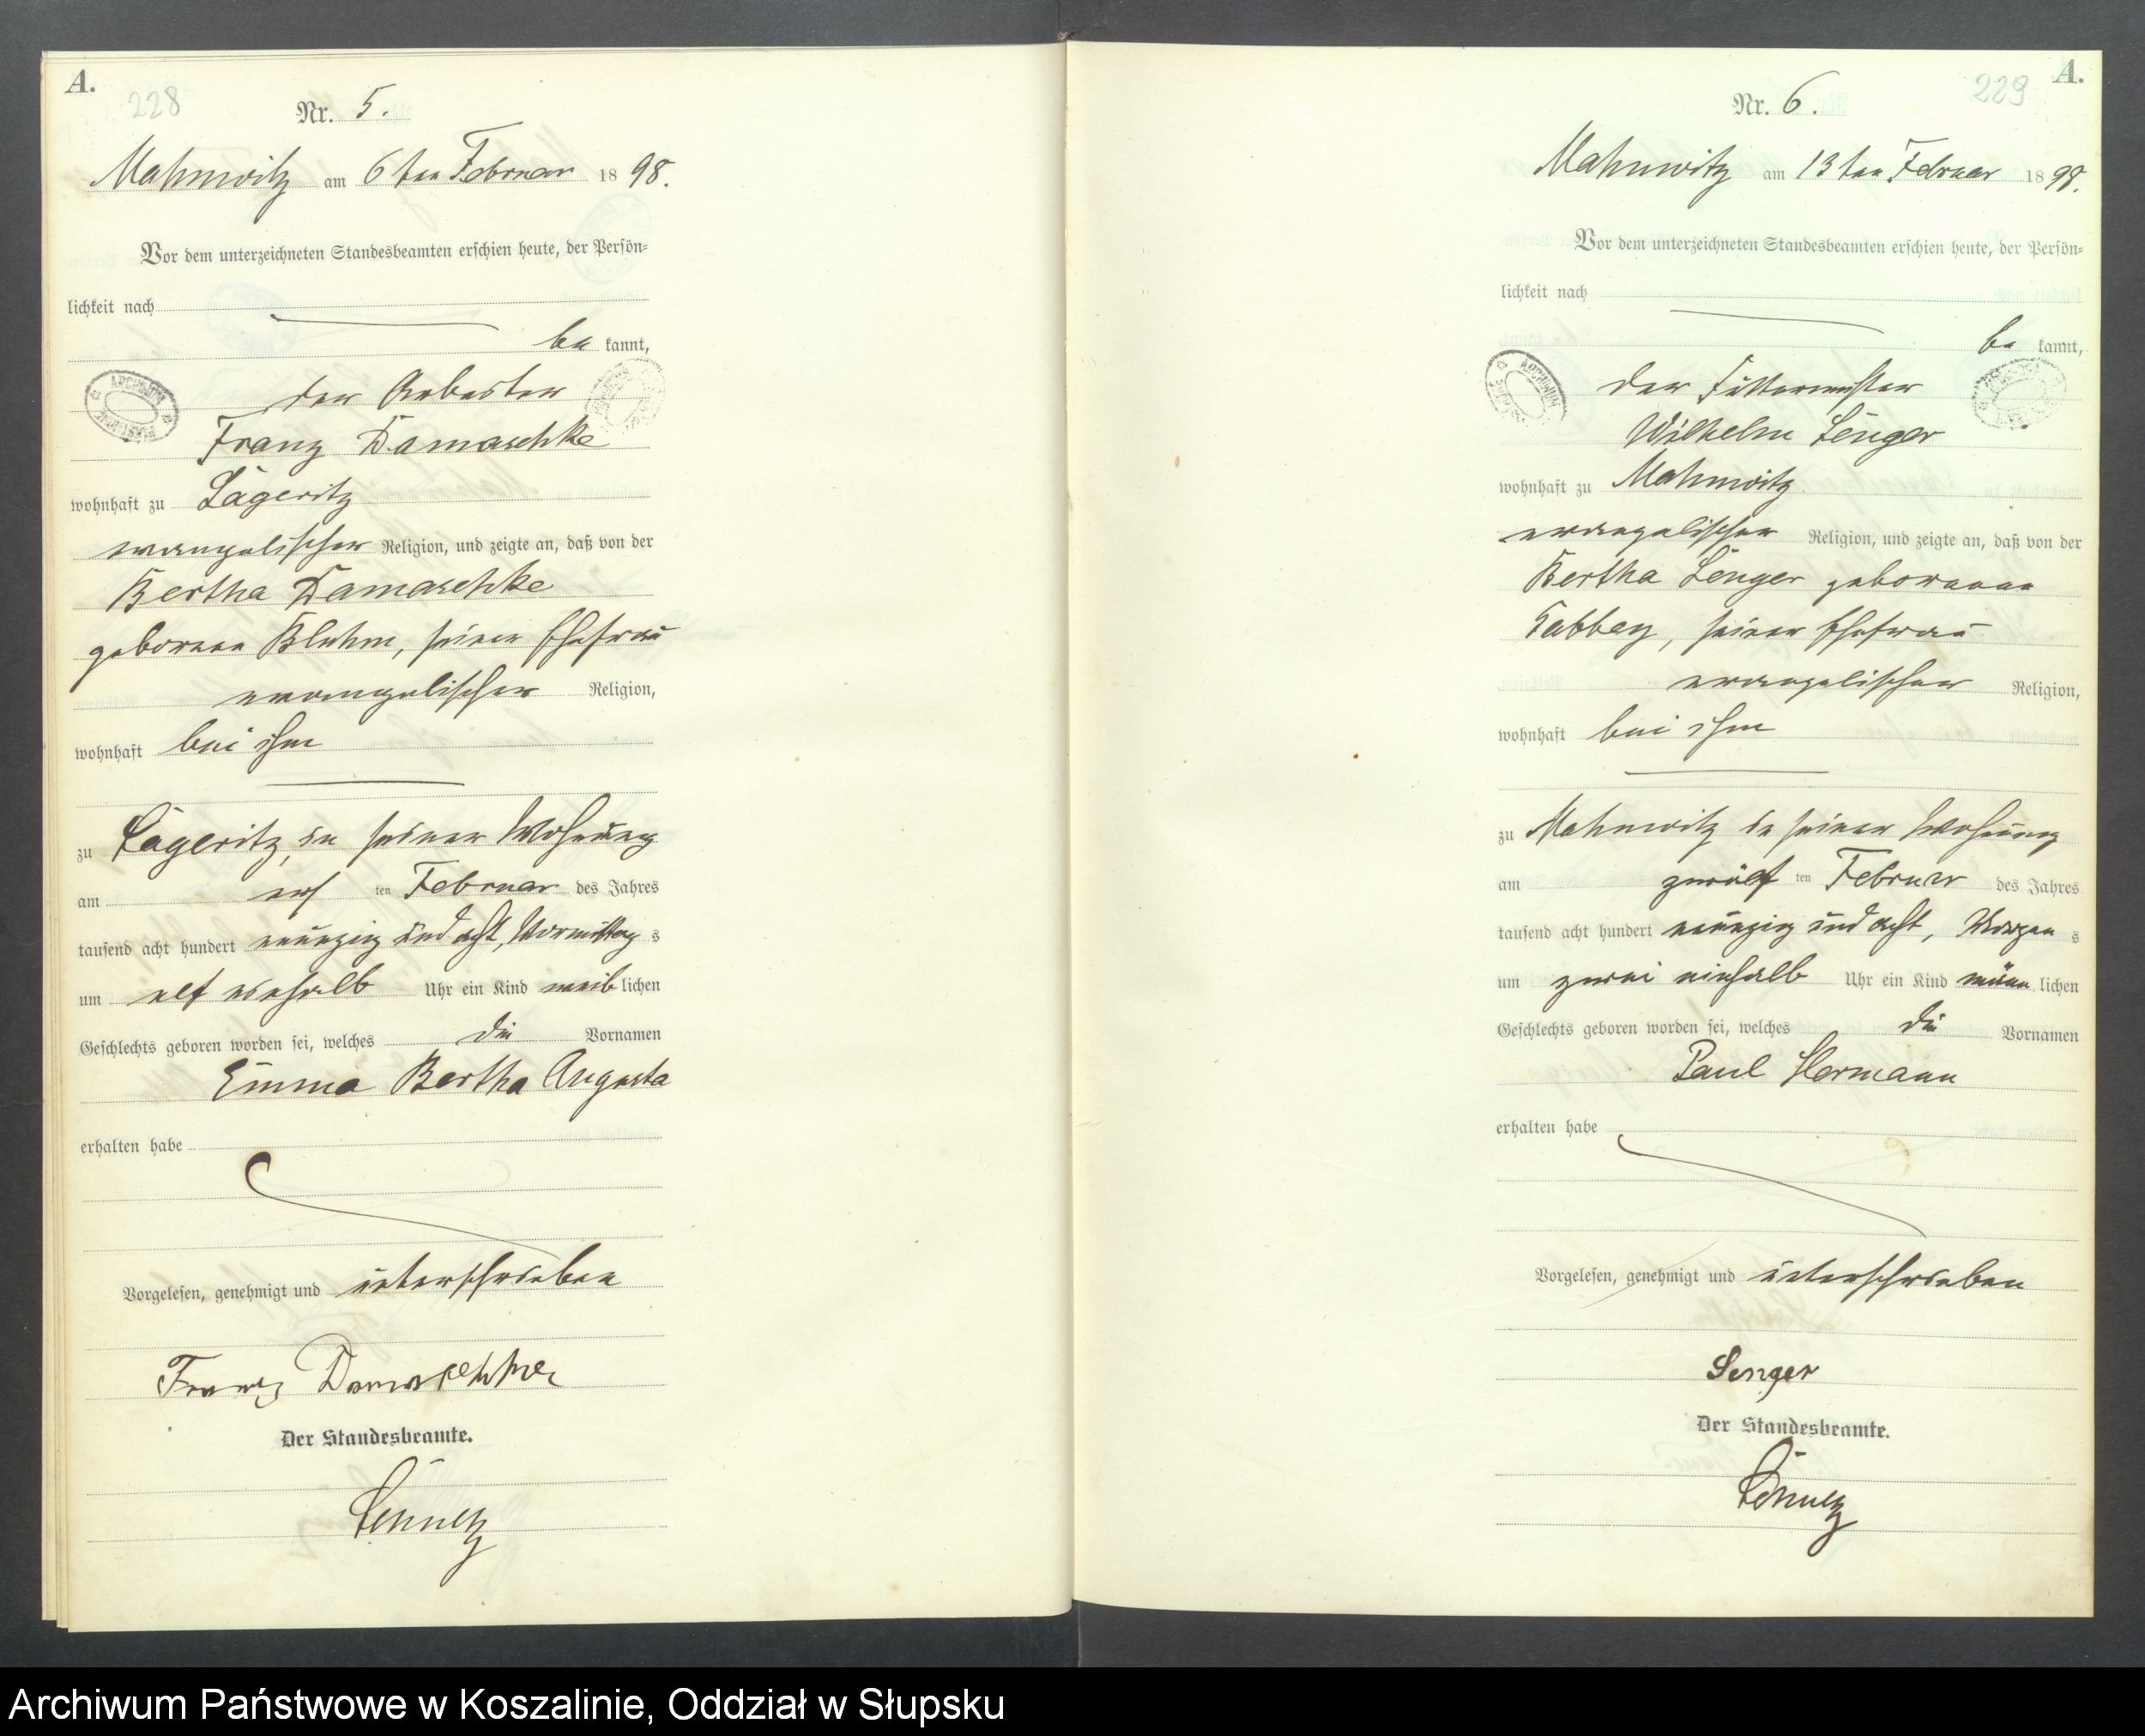 A.
228
Nr. 5.
Mahnwitz am 6ten Februar 1898.
Vor dem unterzeichneten Standesbeamten erschien heute, der Persön-
lichkeit nach
be kannt,
der Arbeiter
Franz Damaschke
wohnhaft zu Lägeritz
evangelischer Religion, und zeigte an, daß von der
Bertha Damaschke
geborene Bluhm, seiner Ehefrau
evangelischer Religion,
wohnhaft bei ihm
zu Lägeritz, in seiner Wohnung
am ten Februar des Jahres
tausend acht hundert neunzig und acht, Vormittag s
um elf einhalb Uhr ein Kind weib lichen
Geschlechts geboren worden sei, welches die Vornamen
Emma Bertha Augusta
erhalten habe
Vorgelesen, genehmigt und unterschrieben
Franz Damaschke
Der Standesbeamte.
A.
229
Nr. 6.
Mahnwitz am 13ten Februar 1898.
Vor dem unterzeichneten Standesbeamten erschien heute, der Persön-
lichkeit nach
be kannt,
der Futtermeister
Wilhelm Senger
wohnhaft zu Mahnwitz
evangelischer Religion, und zeigte an, daß von der
Bertha Senger geborenen
seiner Ehefrau
evangelischer Religion,
wohnhaft bei ihm
zu Mahnwitz in seiner Wohnung
am zwölf ten Februar des Jahres
tausend acht hundert neunzig und acht, Morgen s
um zwei einhalb Uhr ein Kind männ lichen
Geschlechts geboren worden sei, welches die Vornamen
Paul Hermann
erhalten habe
Vorgelesen, genehmigt und unterschrieben
Senger
Der Standesbeamte.
Archiwum Państwowe w Koszalinie, Oddział w Słupsku